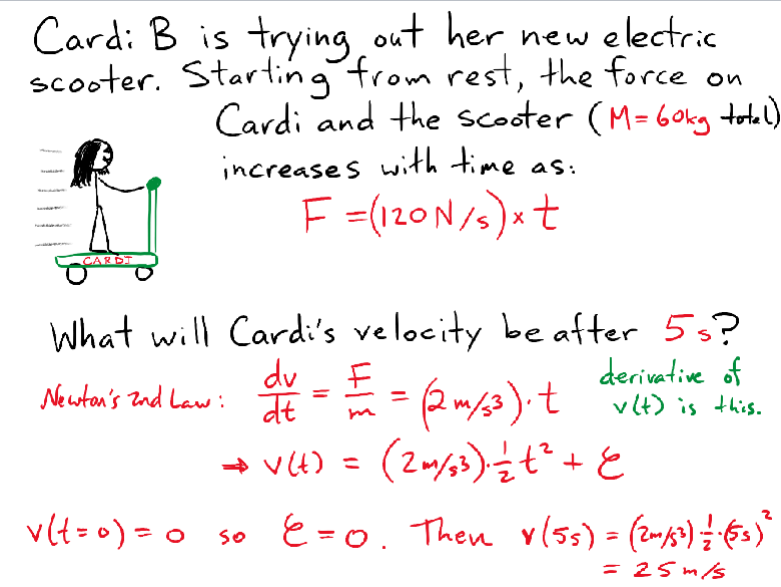 Cardi B is trying out her new electric
scooter. Starting from rest, the force on
Cardi and the scooter (M=60kg total)
increases with time as:
F = (120 N/s) × t
CARDI
What will Cardi's velocity be after 5s?
Newton's 2nd Law: dv/dt = F/m = (2 m/s³)·t derivative of v(t) is this.
⇒ v(t) = (2 m/s³)·½ t² + C
v(t=0) = 0 so C = 0. Then v(5s) = (2m/s³) ½·(5s)²
= 25 m/s